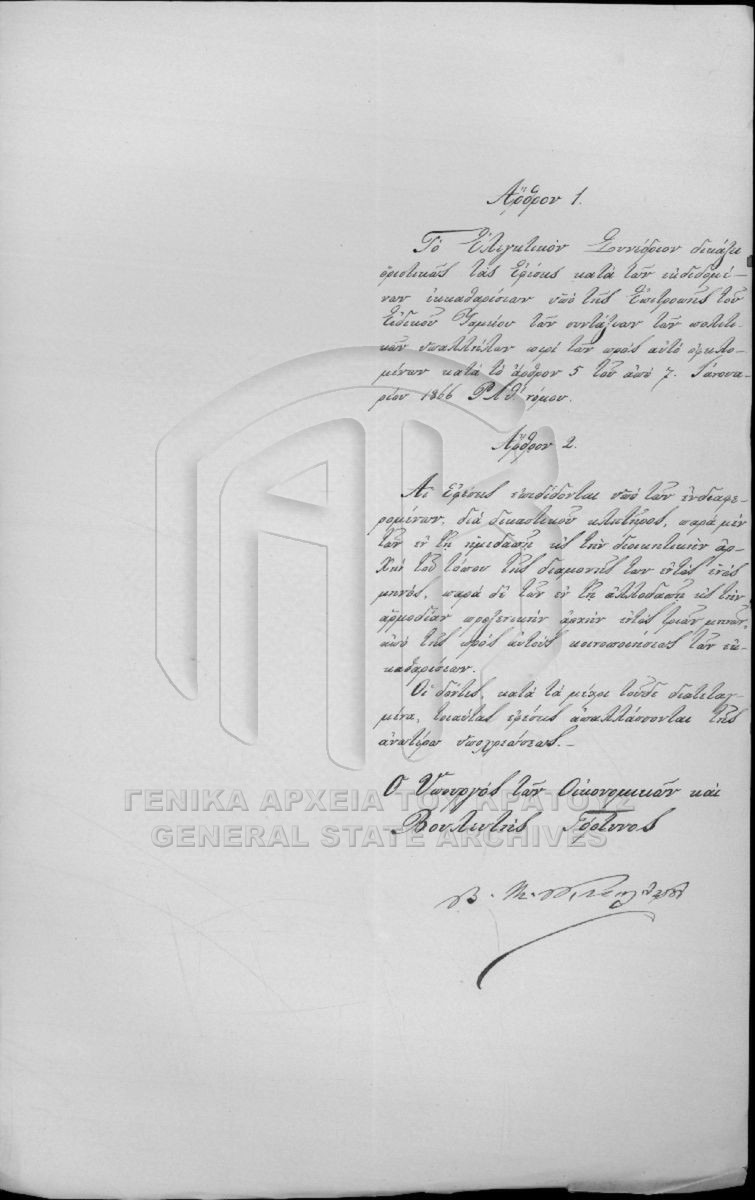 Ἄρθρον 1.
Τὸ Ἐλεγκτικὸν Συνέδριον δικάζει
ὁριστικῶς τὰς ἐφέσεις κατὰ τῶν ἐκδεδομέ-
νων ἐκκαθαρίσεων ὑπὸ τῆς Ἐπιτροπῆς τοῦ
Εἰδικοῦ Ταμείου τῶν συντάξεων τῶν πολιτι-
κῶν ὑπαλλήλων περὶ τῶν πρὸς αὐτὸ ὀφειλο-
μένων κατὰ τὸ ἄρθρον 5 τοῦ ἀπὸ 7. Ἰανουα-
ρίου 1866 ΡΛΘʹ νόμου.
Ἄρθρον 2.
Αἱ ἐφέσεις ἐπιδίδονται ὑπὸ τῶν ἐνδιαφε-
ρομένων, διὰ δικαστικοῦ κλητῆρος, παρὰ μὲν
τῶν ἐν τῇ ἡμεδαπῇ εἰς τὴν διοικητικὴν ἀρ-
χὴν τοῦ τόπου τῆς διαμονῆς των ἐντὸς ἑνὸς
μηνός, παρὰ δὲ τῶν ἐν τῇ ἀλλοδαπῇ εἰς τὴν
ἁρμοδίαν προξενικὴν ἀρχὴν ἐντὸς τριῶν μηνῶν,
ἀπὸ τῆς πρὸς αὐτοὺς κοινοποιήσεως τῶν ἐκ-
καθαρίσεων.
Οἱ δόντες, κατὰ τὰ μέχρι τοῦδε διατεταγ-
μένα, τοιαύτας ἐφέσεις ἀπαλλάσσονται τῆς
ἀνωτέρω ὑποχρεώσεως.-
Ὁ Ὑπουργὸς τῶν Οἰκονομικῶν καὶ
Βουλευτὴς Γόρτυνος
ΓΕΝΙΚΑ ΑΡΧΕΙΑ ΤΟΥ ΚΡΑΤΟΥΣ
GENERAL STATE ARCHIVES